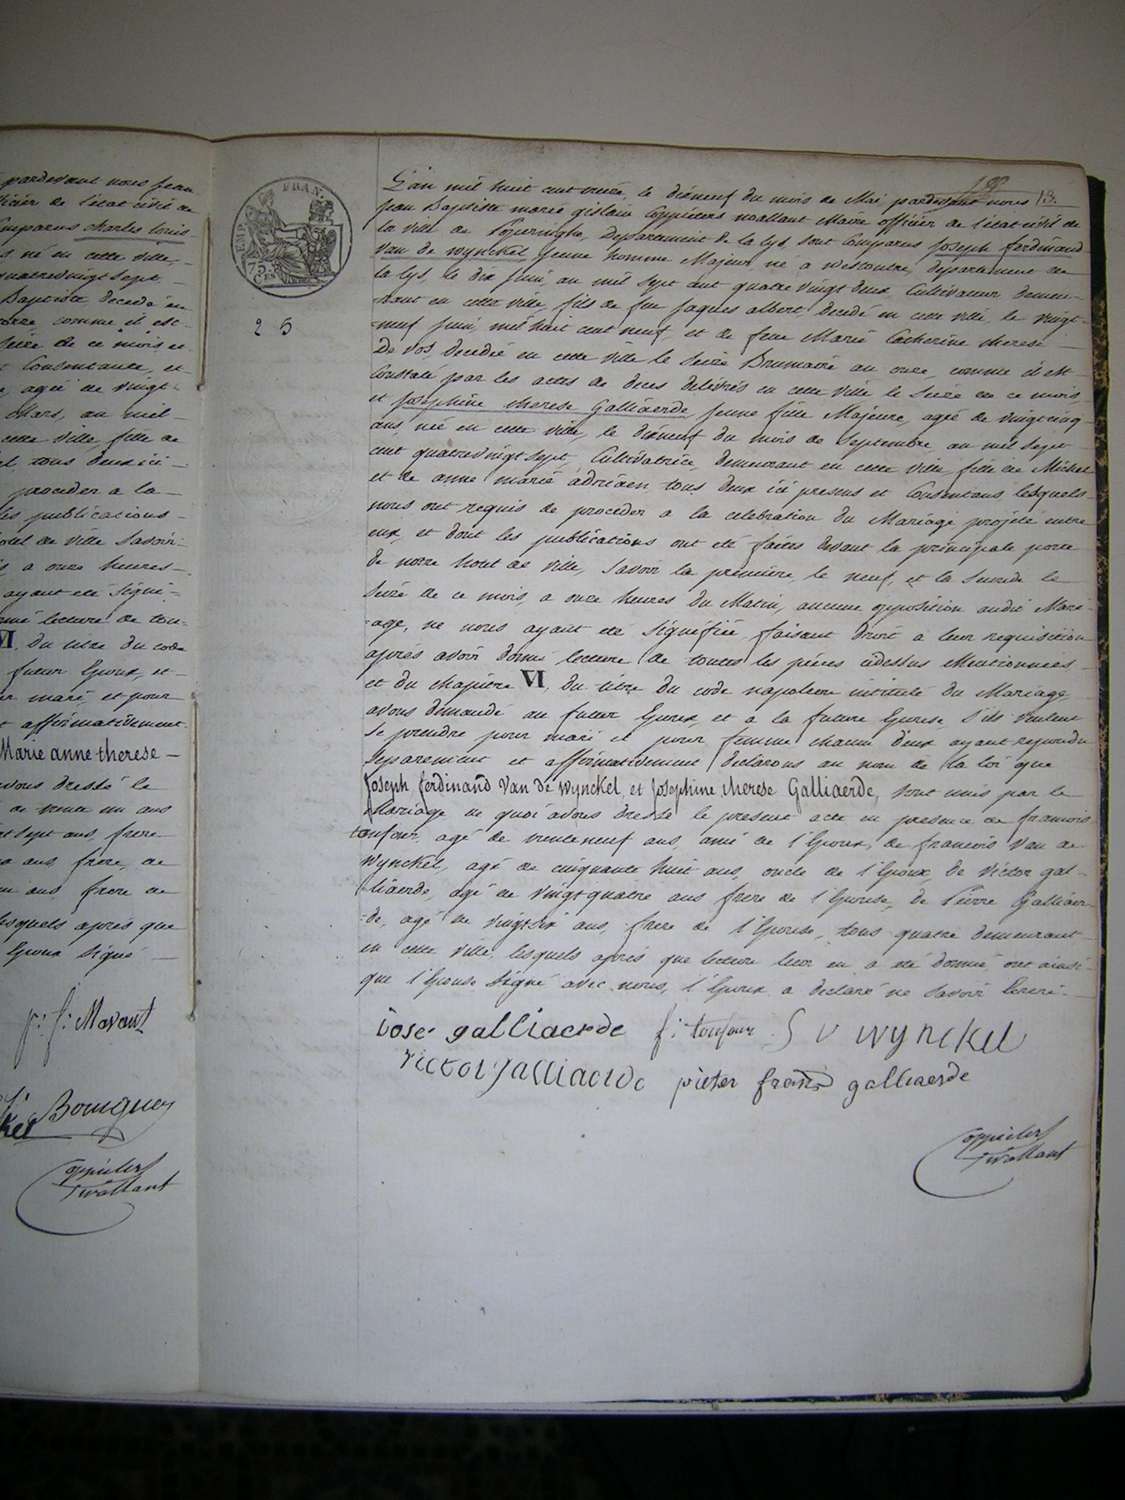 pardevant nous jean
officier de l'état civil de
comparus charles louis
né en cette ville,
quatrevingt sept
Baptiste decedé en
comme il est
seize de ce mois et
Consentante, et
agée de vingt
mars, au mil
cette ville, fille de
tous deux ici
proceder a la
les publications
hotel de ville Savoir
a onze heures
ayant été signi-
lecture de tou-
VI, du titre du code
futur Epoux, et
mari, et pour
affirmativement
Marie anne therese
avons dressé le
de trente un ans
sept ans, frere
ans, frere, de
ans, frere de
lesquels après que
Epoux Signé
p: f: Mavaut
Bouquey
Coppieters
Twallant
EMP. FRAN.
75 C.
25
188
13.
L'an mil huit cent treize, le dixneuf du mois de Mai, pardevant nous
jean Baptiste marie gislain Coppieters wallant Maire officier de l'état civil de
la ville de Poperinghe, Departement de la Lys sont Comparus joseph ferdinand
Van de wynckel jeune homme Majeur né a westoutre, departement de
la Lys, le dix juin, au mil sept cent quatre vingt deux Cultivateur demeu-
rant en cette ville, fils de feu jaques albert decedé en cette ville, le vingt-
neuf juin, mil huit cent neuf, et de feue Marie Catherine therese
De vos, decedée en cette ville le Seize Brumaire an onze, comme il est
Constaté par les actes de deces delivrés en cette ville le Seize de ce mois
et josephine therese Galliaerde, jeune fille Majeure, agée de vingtcinq
ans, née en cette ville, le dixneuf du mois de septembre, au mil sept
cent quatrevingt sept, Cultivatrice, demeurant en cette ville, fille de Michel
et de anne marie adriaen, tous deux ici presens et Consentans lesquels
nous ont requis de proceder a la celebration du Mariage projeté entre
eux et dont les publications ont été faites devant la principale porte
de notre hotel de ville, Savoir la premiere, le neuf, et la Seconde le
Seize de ce mois, a onze heures du Matin, aucune opposition audit Mari-
age, ne nous ayant été signifiée, faisant droit a leur requisition
après avoir donné lecture de toutes les pièces cidessus Mentionnées
et du chapitre VI, du titre du code napoleon intitulé du Mariage
avons demandé au futur Epoux, et a la future Epouse, s'ils veulent
se prendre pour mari et pour femme chacun d'eux ayant repondu
separement et affirmativement, declarons au nom de la loi que
Joseph ferdinand Van de Wynckel, et josephine therese Galliaerde, sont unis par le
Mariage de quoi avons dressé le present acte en presence de francois
toufour, agé de trenteneuf ans, ami de l'Epoux, de francois Van de
Wynckel, agé de cinquante huit ans, oncle de l'Epoux, de Victor gal-
liaerde, agé de vingtquatre ans frere de l'Epouse, de Pierre Galliaer-
de, agé de vingtsix ans, frere de l'Epouse, tous quatre demeurant
en cette ville, lesquels après que lecture leur en a été donnée, ont ainsi
que l'Epouse signé avec nous, l'Epoux a declaré ne savoir Ecrire.
iose galliaerde f: toufour S V wynckel
victor galliaerde pieter frans galliaerde
Coppieters
Twallant